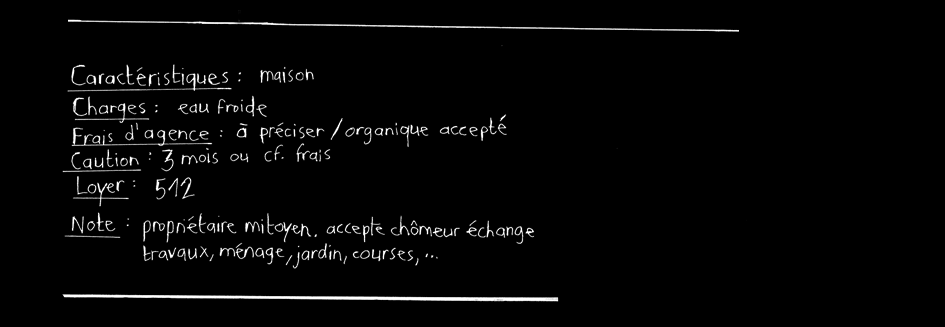 Caractéristiques : maison
Charges : eau froide
Frais d'agence : à préciser / organique accepté
Caution : 3 mois ou cf. frais
Loyer : 512
Note : propriétaire mitoyen. accepte chômeur échange
travaux, ménage, jardin, courses, ...